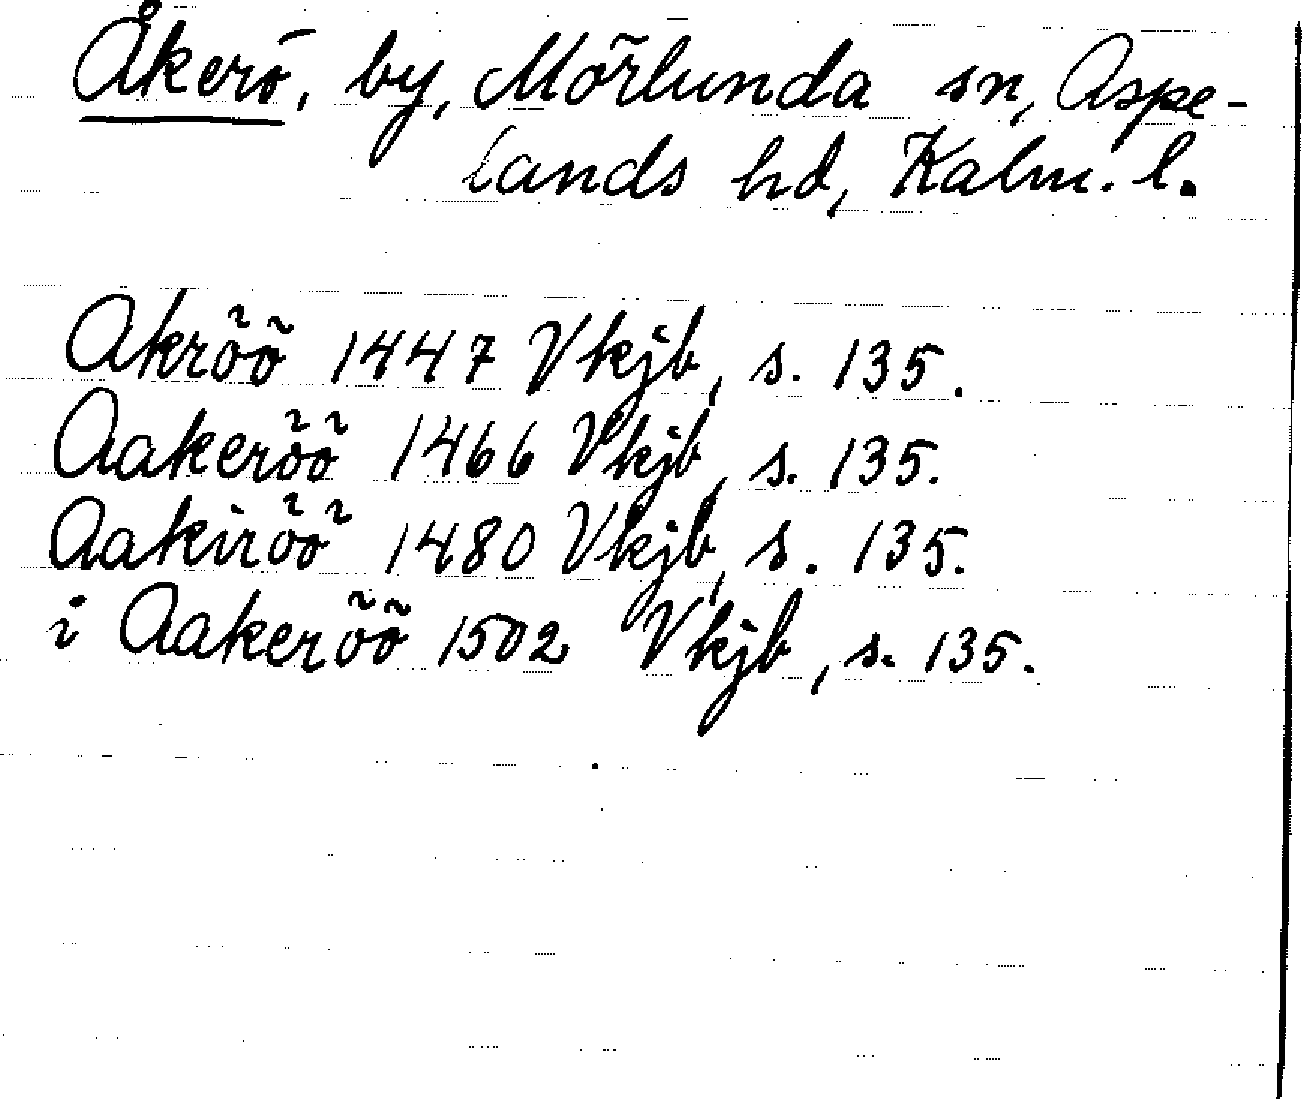 Åkerö, by, Mörlunda sn, Aspe-
lands hd, Kalm. l.
Akröö 1447 Vkjb, s. 135.
Aakeröö 1466 Vkjb, s. 135.
Aakiröö 1480 Vkjb, s. 135.
i Aakeröö 1502 Vkjb, s. 135.